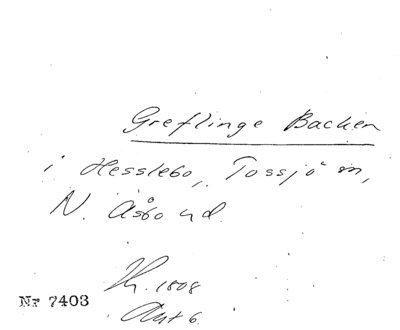 Greflinge Backen
i Hesslebo, Tossjö sn,
N. Åsbo hd.
Th. 1808
Akt 6.
Nr 7403